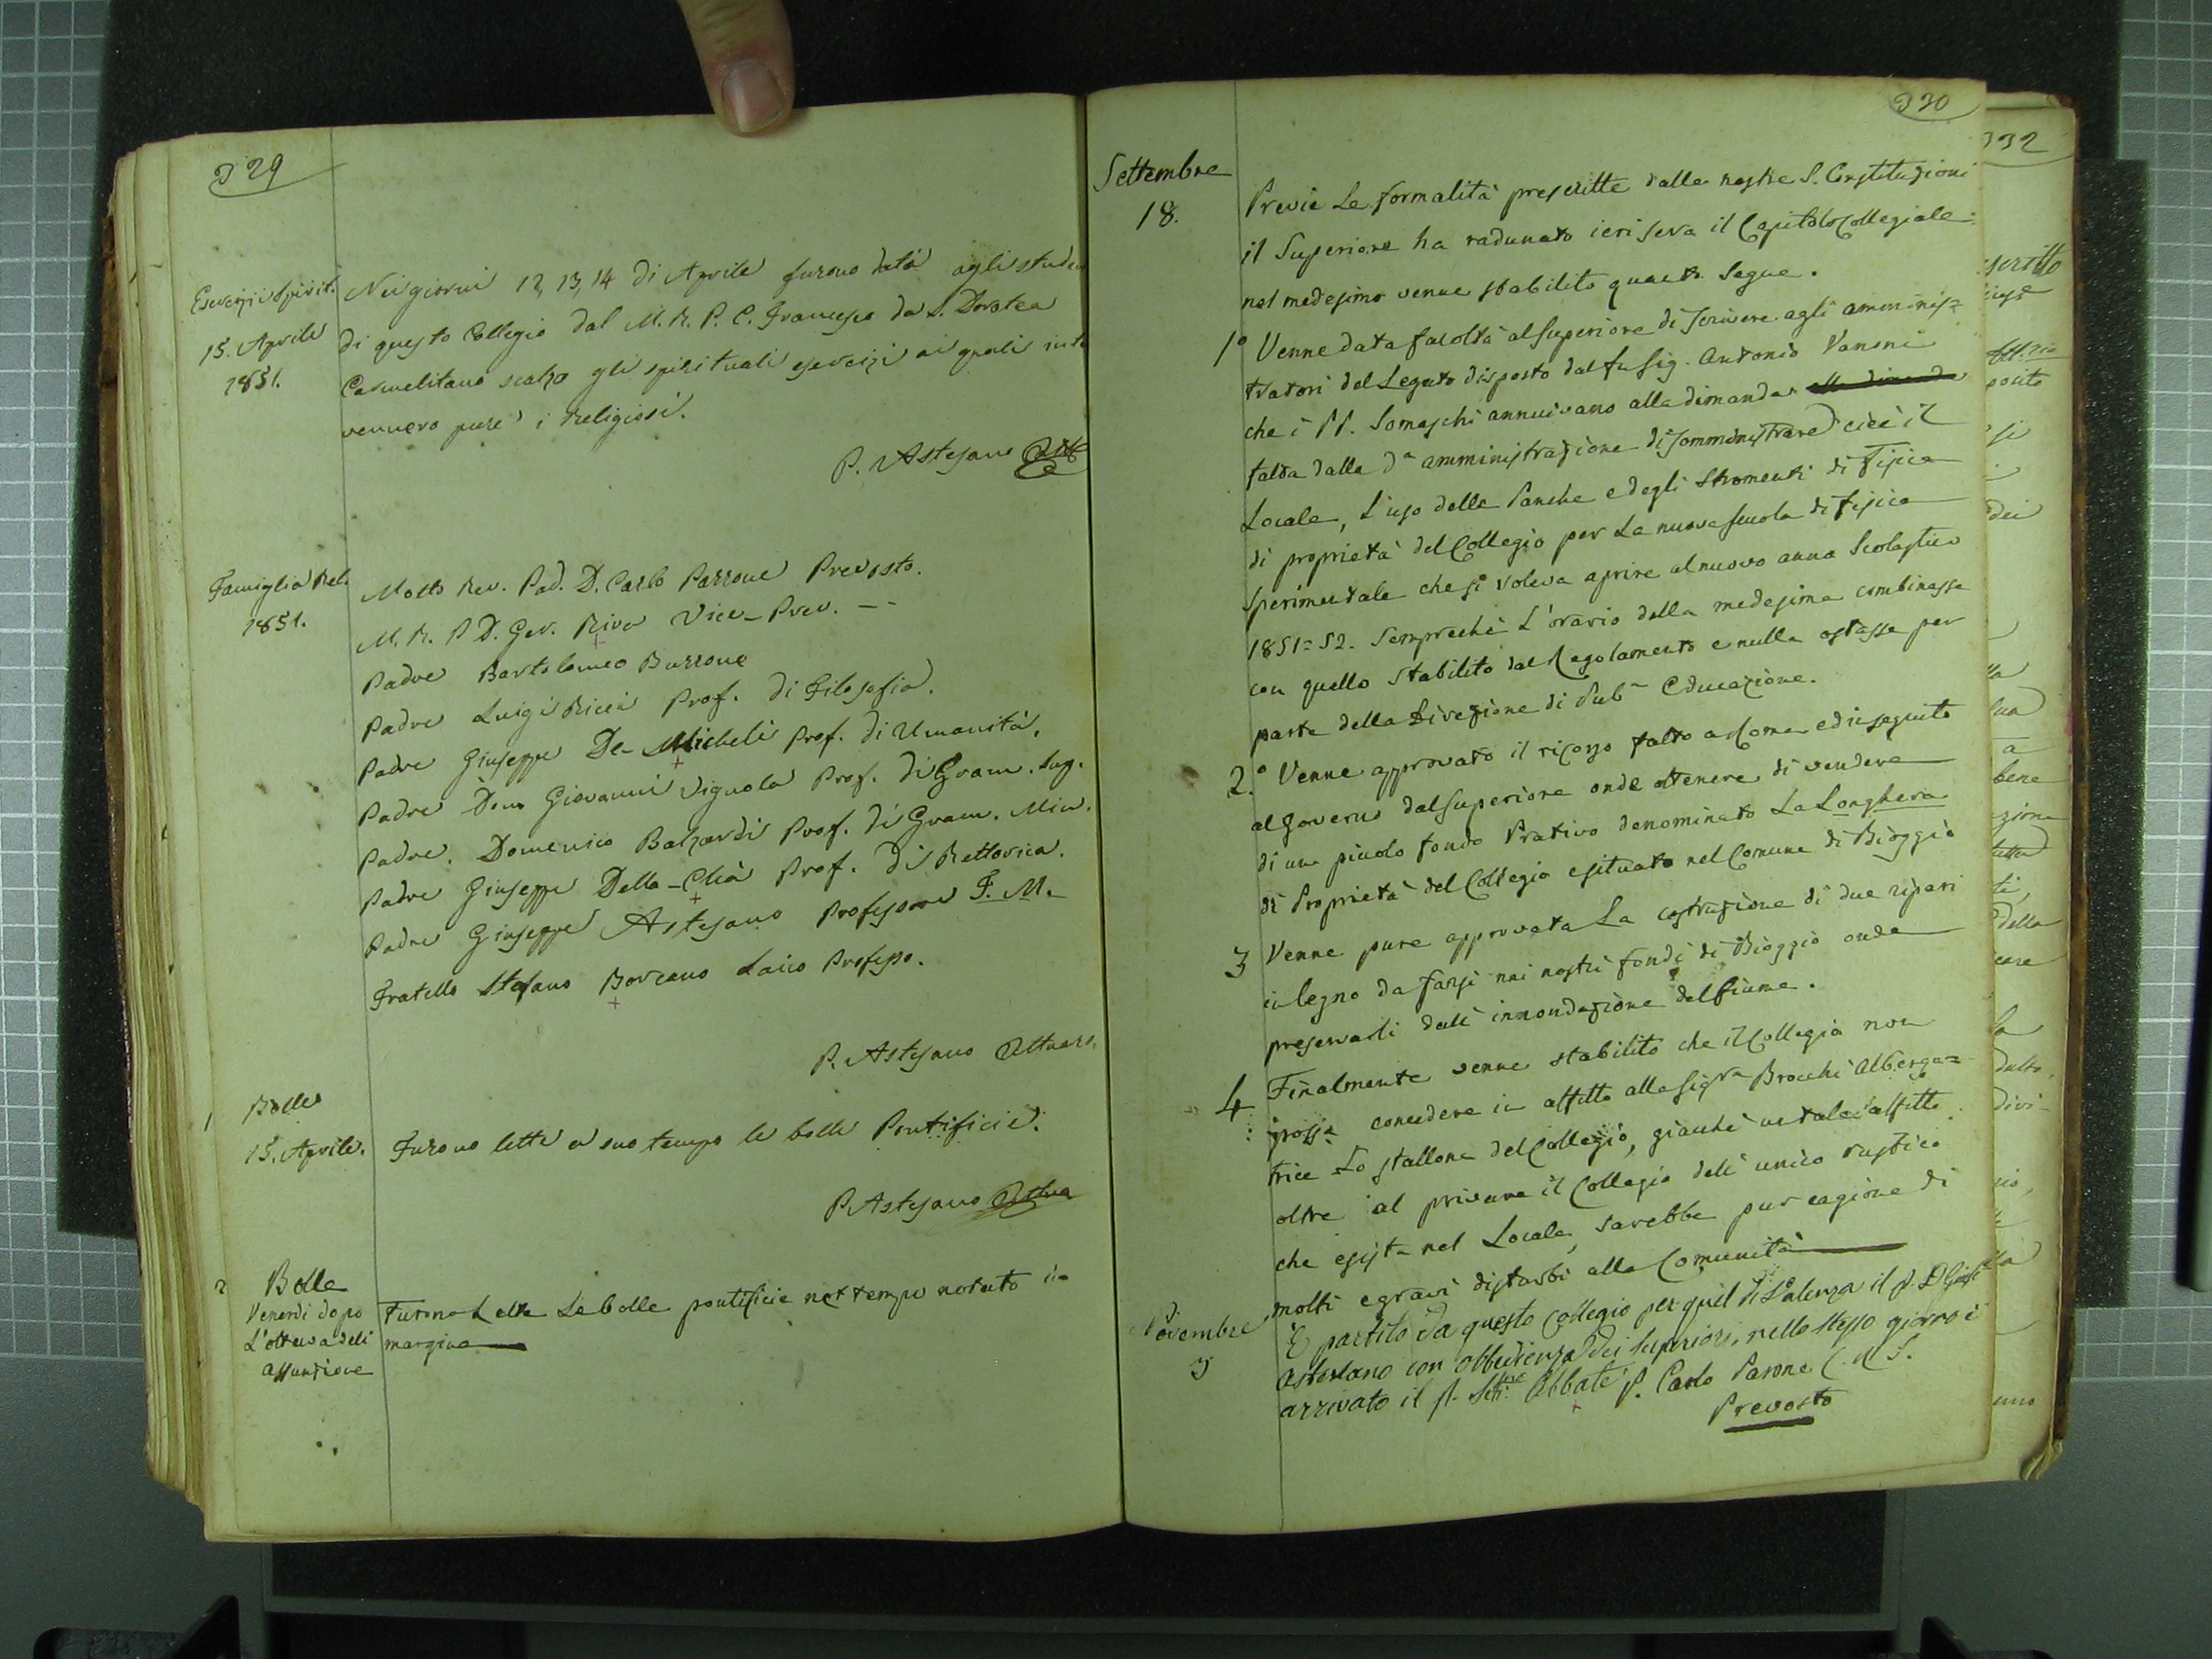 329
Esercizii Spirit.
15. Aprile
1851.
Nei giorni 12, 13, 14 di Aprile furono dati agli studen
di questo Collegio dal M. R. P. C. Francesco da S. Dorotea
Carmelitano scalzo gli spirituali esercizi ai quali inte
vennero pure i Religiosi.
P. Astesano Att
Famiglia Rel.
1851.
Molto Rev. Pad. D. Carlo Parrone Prevosto.
M. R. P. D. Gev. Riva Vice-Prev. --
Padre Bartolomeo Burrone
Padre Luigi Ricci Prof. di Filosofia.
Padre Giuseppe De-Micheli Prof. di Umanità.
Padre Don Giovanni Vignola Prof. di Gram. Sup.
Padre. Domenico Balzardi Prof. di Gram. Min.
Padre Giuseppe Della-Chià Prof. di Rettorica.
Padre Giuseppe Astesano Professore F. M.
Fratello Stefano Boveano Laico Professo.
P. Astesano Attuaro.
1 Bolle
15. Aprile.
Furono lette a suo tempo le bolle Pontificie.
P. Astesano Attua
2 Bolle
Venerdi dopo
L'ottava dell'
Assunzione
Furono Lette Le bolle pontificie nel tempo notato in
margine
330
Settembre
18.
Previe Le formalità prescritte dalle nostre S. Costituzioni
il Superiore ha radunato ieri sera il Capitolo Collegiale
nel medesimo venne stabilito quanto segue.
1º Venne data facoltà al Superiore di scrivere agli amminis=
tratori del Legato disposto dal fu Sig. Antonio Vanoni
che i PP. Somaschi annuivano alla dimanda
fatta dalla dª amministrazione di somministrare cioè il
Locale, L'uso delle Panche e degli Stromenti di Fisica
di proprietà del Collegio per La nuova scuola di fisica
Sperimentale che si voleva aprire al nuovo anno Scolastico
1851=52. Semprechè L'orario della medesima combinasse
con quello stabilito dal Regolamento e nulla ostasse per
parte della Direzione di Pubª Educazione.
2.º Venne approvato il ricorso fatto a Roma ed in seguito
al Governo dal Superiore onde ottenere di vendere
di un piccolo fondo Prativo denominato La Longhera
di Proprietà del Collegio e situato nel Comune di Bioggio
3 Venne pure approvata La costruzione di due ripari
in legno da farsi nei nostri fondi di Bioggio onde
preservarli dall' innondazione del fiume.
4 Finalmente venne stabilito che il Collegio non
possa concedere in affitto alla Sigra Brocchi Alberga=
trice Lo stallone del Collegio, giacchè un tale affitto
oltre al privare il Collegio dell' unico rustico
che esiste nel Locale, sarebbe pur cagione di
molti e gravi disturbi alla Comunità
Novembre
3
È partito da questo Collegio per quel di Valenza il P. D. Giusª
Astesano con obbedienza dei Superiori, nello stesso giorno è
arrivato il P. Abbate P. Carlo Parone C. R. S.
Prevosto
332